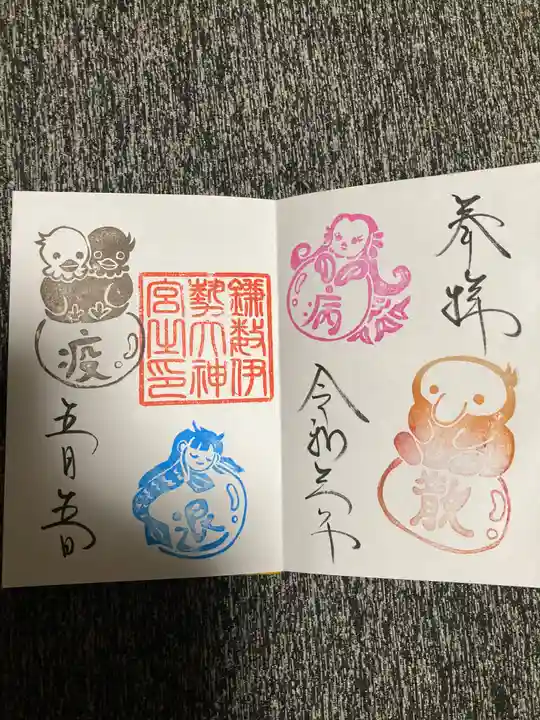 奉拝
病
散
令和六年
鎌数伊
勢大神
宮之印
疫
退
五月五日